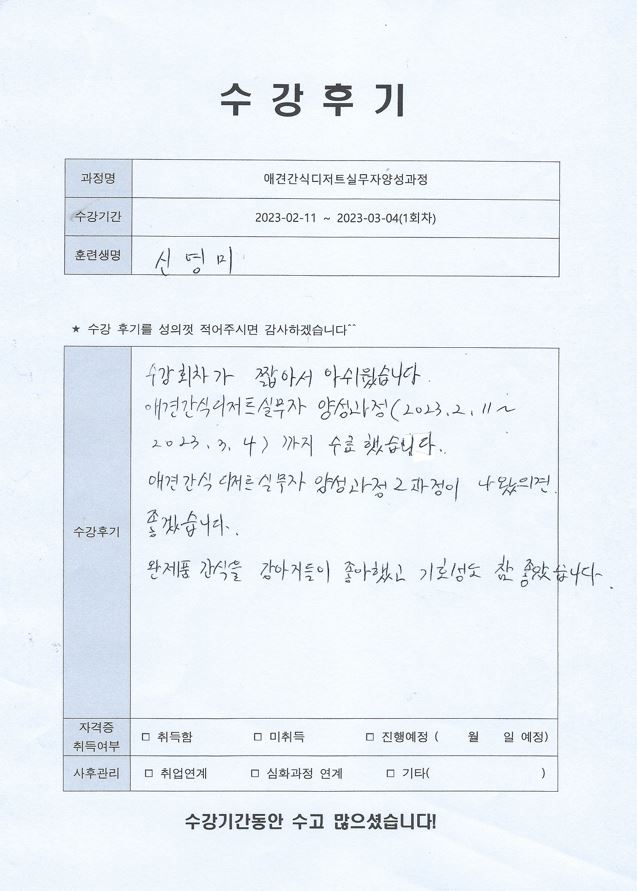 수 강 후 기
과정명 애견간식디저트실무자양성과정
수강기간 2023-02-11 ~ 2023-03-04(1회차)
훈련생명 신영미
★ 수강 후기를 성의껏 적어주시면 감사하겠습니다^^
수강회차가 짧아서 아쉬웠습니다.
애견간식디저트실무자 양성과정(2023.2.11~
2023.3.4) 까지 수료했습니다.
애견간식 디저트실무자 양성과정 2과정이 나왔으면
좋겠습니다.
수강후기
완제품 간식을 강아지들이 좋아했고 기호성도 참 좋았습니다.
자격증
취득여부 □ 취득함 □ 미취득 □ 진행예정 ( 월 일 예정)
사후관리 □ 취업연계 □ 심화과정 연계 □ 기타( )
수강기간동안 수고 많으셨습니다!